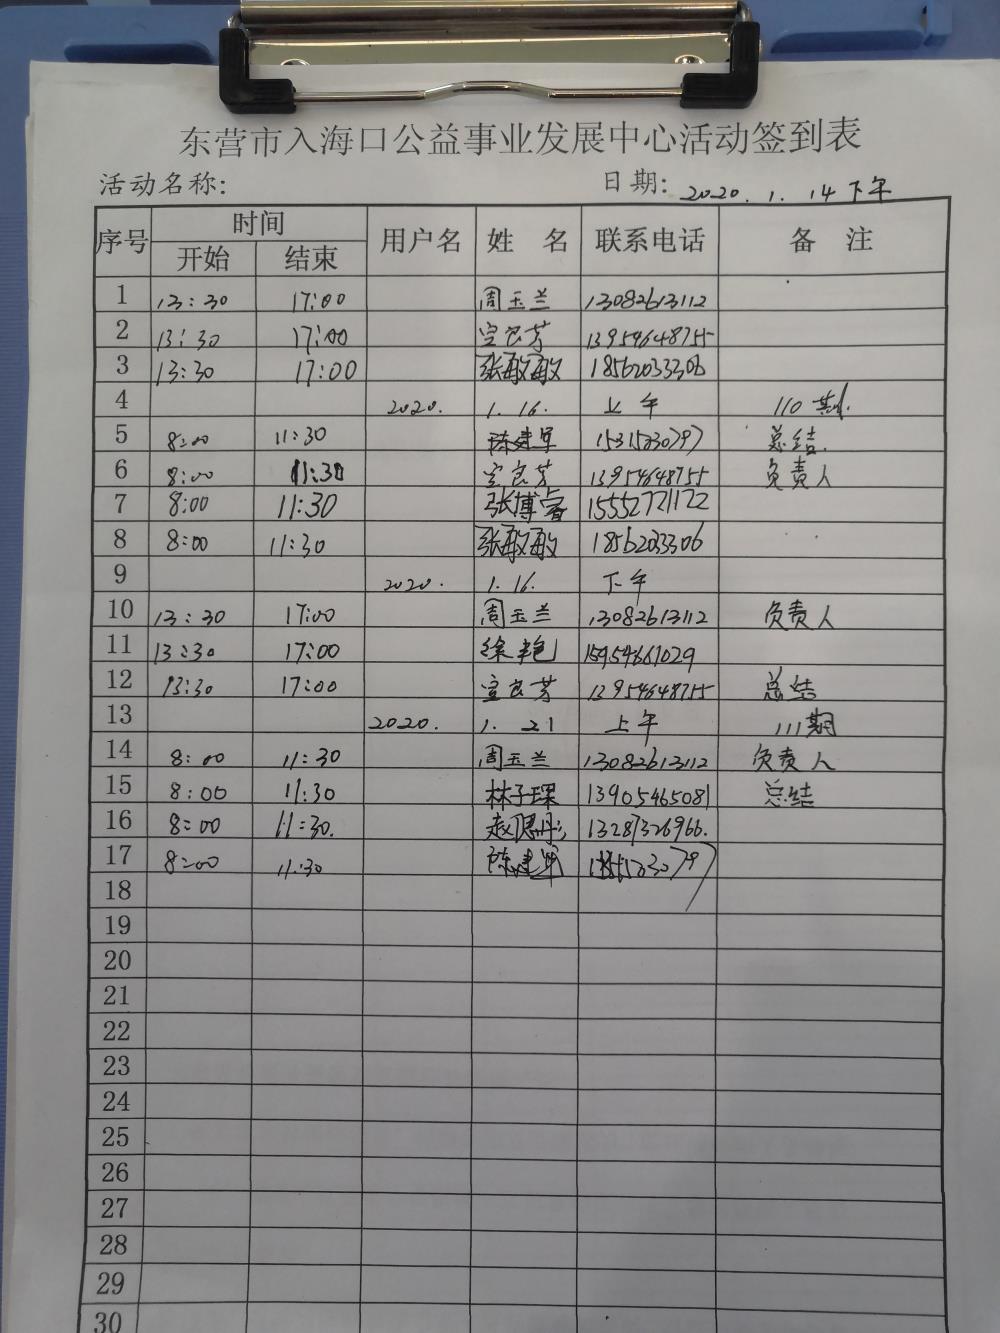 东营市入海口公益事业发展中心活动签到表
活动名称: 日期: 2020. 1. 14下午
序号 时间 用户名 姓 名 联系电话 备 注
开始 结束
1 13:30 17:00 周玉兰 13082613112
2 13:30 17:00 宣良芳 13954648755
3 13:30 17:00 张敏敏 18562033306
4 2020. 1. 16. 上午 110期.
5 8:00 11:30 陈建军 总结.
6 8:00 11:30 宣良芳 13954648755 负责人
7 8:00 11:30 张博睿 15552721122
8 8:00 11:30 张敏敏 18562033306
9 2020. 1. 16. 下午
10 13:30 17:00 周玉兰 13082613112 负责人
11 13:30 17:00 徐艳 15954661029
12 13:30 17:00 宣良芳 13954648755 总结
13 2020. 1. 21 上午 111期
14 8:00 11:30 周玉兰 13082613112 负责人
15 8:00 11:30 林子琛 13905465081 总结
16 8:00 11:30. 13287326966.
17 8:00 11:30 陈建军
18
19
20
21
22
23
24
25
26
27
28
29
30